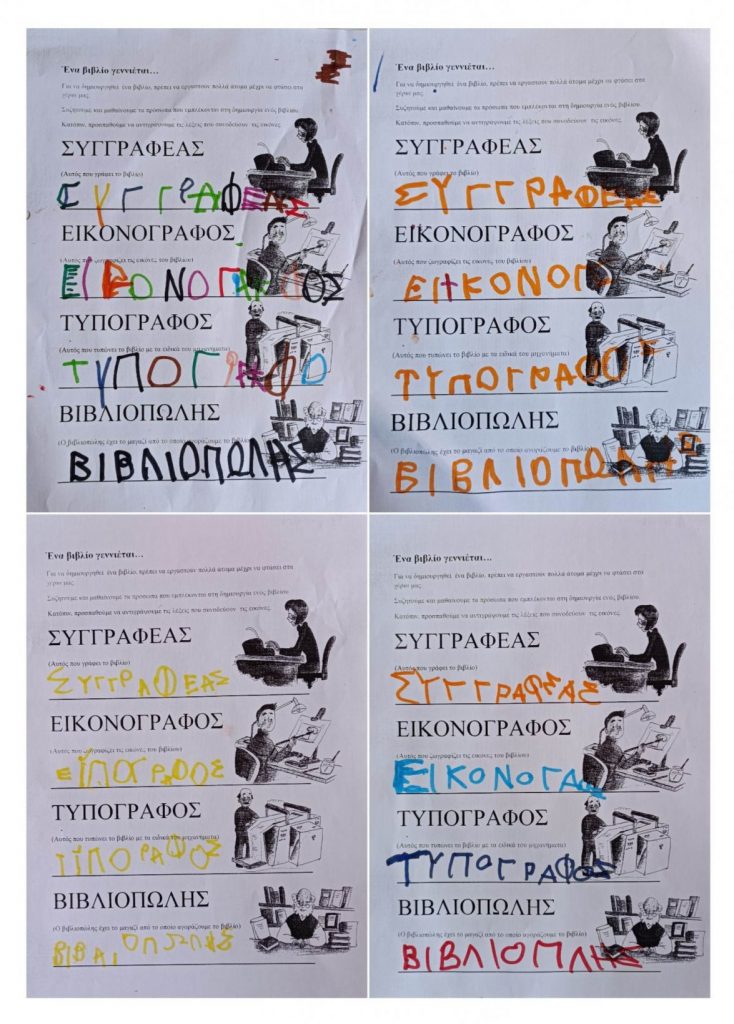 Ένα βιβλίο γεννιέται...
Για να δημιουργηθεί ένα βιβλίο, πρέπει να εργαστούν πολλά άτομα μέχρι να φτάσει στα
χέρια μας.
Συζητούμε και μαθαίνουμε τα πρόσωπα που εμπλέκονται στη δημιουργία ενός βιβλίου.
Κατόπιν, προσπαθούμε να αντιγράψουμε τις λέξεις που συνοδεύουν τις εικόνες.
ΣΥΓΓΡΑΦΕΑΣ
(Αυτός που γράφει το βιβλίο)
ΣΥΓΓΡΑΦΕΑΣ
ΕΙΚΟΝΟΓΡΑΦΟΣ
(Αυτός που ζωγραφίζει τις εικόνες του βιβλίου)
ΤΥΠΟΓΡΑΦΟΣ
(Αυτός που τυπώνει το βιβλίο με τα ειδικά του μηχανήματα)
ΤΥΠΟΓΡΑΦΟ
ΒΙΒΛΙΟΠΩΛΗΣ
(Ο βιβλιοπώλης έχει το μαγαζί από το οποίο αγοράζουμε το βιβλίο)
ΒΙΒΛΙΟΠΩΛΗΣ
Ένα βιβλίο γεννιέται...
Για να δημιουργηθεί ένα βιβλίο, πρέπει να εργαστούν πολλά άτομα μέχρι να φτάσει στα
χέρια μας.
Συζητούμε και μαθαίνουμε τα πρόσωπα που εμπλέκονται στη δημιουργία ενός βιβλίου.
Κατόπιν, προσπαθούμε να αντιγράψουμε τις λέξεις που συνοδεύουν τις εικόνες.
ΣΥΓΓΡΑΦΕΑΣ
(Αυτός που γράφει το βιβλίο)
ΣΥΓΓΡΑΦΕΑΣ
ΕΙΚΟΝΟΓΡΑΦΟΣ
(Αυτός που ζωγραφίζει τις εικόνες του βιβλίου)
ΕΙΚΟΝΟΓ
ΤΥΠΟΓΡΑΦΟΣ
(Αυτός που τυπώνει το βιβλίο με τα ειδικά του μηχανήματα)
ΤΥΠΟΓΡΑΦΟΣ
ΒΙΒΛΙΟΠΩΛΗΣ
(Ο βιβλιοπώλης έχει το μαγαζί από το οποίο αγοράζουμε το βιβλίο)
ΒΙΒΛΙΟΠΩΛΗΣ
Ένα βιβλίο γεννιέται...
Για να δημιουργηθεί ένα βιβλίο, πρέπει να εργαστούν πολλά άτομα μέχρι να φτάσει στα
χέρια μας.
Συζητούμε και μαθαίνουμε τα πρόσωπα που εμπλέκονται στη δημιουργία ενός βιβλίου.
Κατόπιν, προσπαθούμε να αντιγράψουμε τις λέξεις που συνοδεύουν τις εικόνες.
ΣΥΓΓΡΑΦΕΑΣ
(Αυτός που γράφει το βιβλίο)
ΣΥΓΓΡΑΦΕΑΣ
ΕΙΚΟΝΟΓΡΑΦΟΣ
(Αυτός που ζωγραφίζει τις εικόνες του βιβλίου)
ΤΥΠΟΓΡΑΦΟΣ
(Αυτός που τυπώνει το βιβλίο με τα ειδικά του μηχανήματα)
ΒΙΒΛΙΟΠΩΛΗΣ
(Ο βιβλιοπώλης έχει το μαγαζί από το οποίο αγοράζουμε το βιβλίο)
Ένα βιβλίο γεννιέται...
Για να δημιουργηθεί ένα βιβλίο, πρέπει να εργαστούν πολλά άτομα μέχρι να φτάσει στα
χέρια μας.
Συζητούμε και μαθαίνουμε τα πρόσωπα που εμπλέκονται στη δημιουργία ενός βιβλίου.
Κατόπιν, προσπαθούμε να αντιγράψουμε τις λέξεις που συνοδεύουν τις εικόνες.
ΣΥΓΓΡΑΦΕΑΣ
(Αυτός που γράφει το βιβλίο)
ΣΥΓΓΡΑΦΕΑΣ
ΕΙΚΟΝΟΓΡΑΦΟΣ
(Αυτός που ζωγραφίζει τις εικόνες του βιβλίου)
ΤΥΠΟΓΡΑΦΟΣ
(Αυτός που τυπώνει το βιβλίο με τα ειδικά του μηχανήματα)
ΤΥΠΟΓΡΑΦΟΣ
ΒΙΒΛΙΟΠΩΛΗΣ
(Ο βιβλιοπώλης έχει το μαγαζί από το οποίο αγοράζουμε το βιβλίο)
ΒΙΒΛΙΟΠΛΗΣ